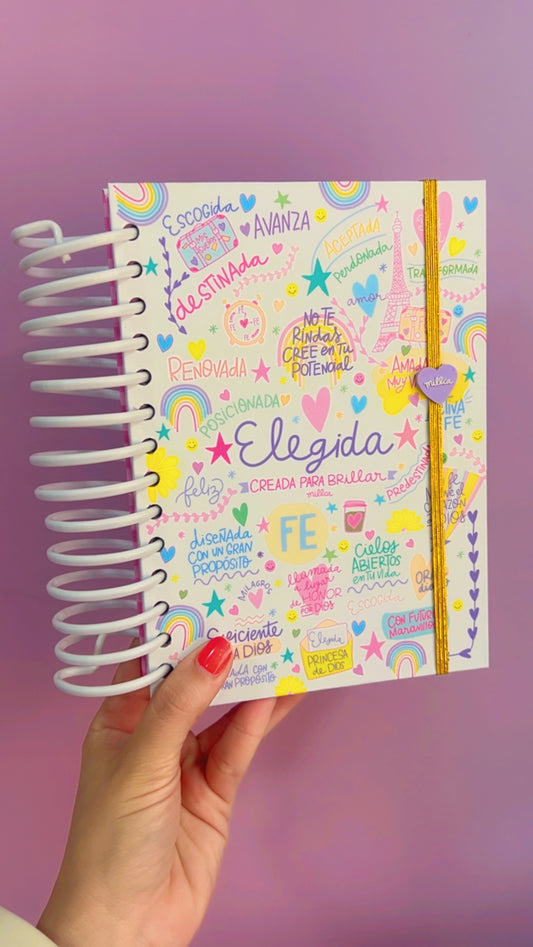 ESCOGIDA
AVANZA
ACEPTADA
perdonada
TRANSFORMADA
destinada
amor
NO TE
RINDAS
CREE en TU
POTENCIAL
RENOVADA
AMADA
millca
POSICIONADA
FE
Elegida
CREADA PARA BRILLAR
millca
PREDESTINADA
feliz
FE
diseñada
CON UN GRAN
PROPÓSITO
Cielos
ABIERTOS
en TU VIDA
llamada
a lugar
de HONOR
POR DIOS
MILAGROS
ESCOGIDA
CON FUTURO
Maravilloso
DIOS
Elegida
PRINCESA
de DIOS
PROPÓSITO